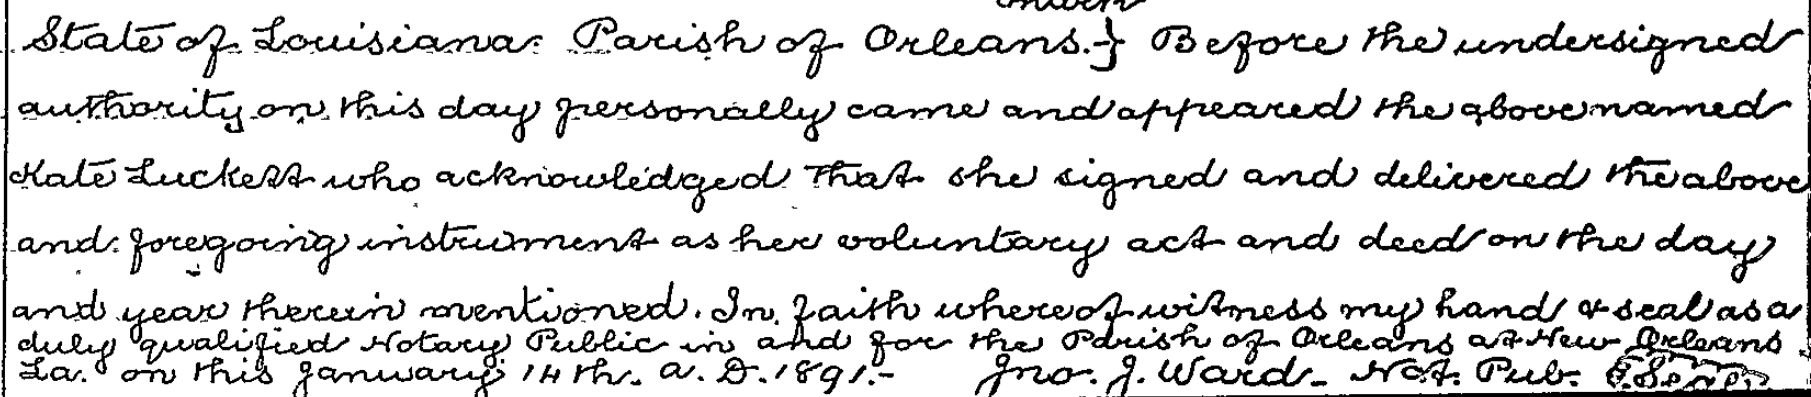 State of Louisiana. Parish of Orleans.} Before the undersigned
authority on this day personally came and appeared the above named
Kate Luckett who acknowledged that she signed and delivered the above
and foregoing instrument as her voluntary act and deed on the day
and year therein mentioned. In faith whereof witness my hand & seal as a
duly qualified Notary Public in and for the Parish of Orleans at New Orleans
La. on this January 14th. A.D. 1891.- Jno. J. Ward - Not. Pub. Seal